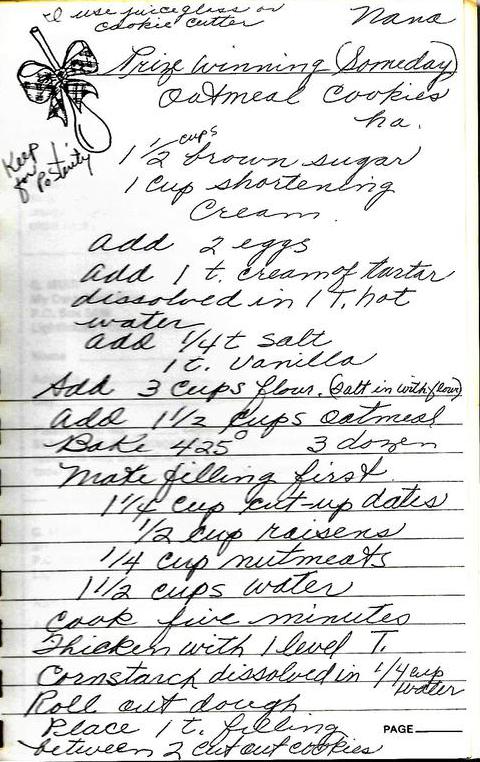 I use juice glass or
cookie cutter
Nana
Prize Winning (Someday)
Oatmeal Cookies
ha.
Keep
for
Posterity
1 1/2 cups brown sugar
1 cup shortening
Cream.
add 2 eggs
add 1 t. cream of tartar
dissolved in 1 T. hot
water
add 1/4 t salt
1 t. Vanilla
Add 3 cups flour. (Salt in with flour)
add 1 1/2 cups oatmeal
Bake 425° 3 dozen
Make filling first
1 1/4 cup cut-up dates
1/2 cup raisens
1/4 cup nutmeats
1 1/2 cups water
Cook five minutes
Thicken with 1 level T.
Cornstarch dissolved in 1/4 cup
water
Roll out dough
Place 1 t. filling
between 2 cut out cookies
PAGE